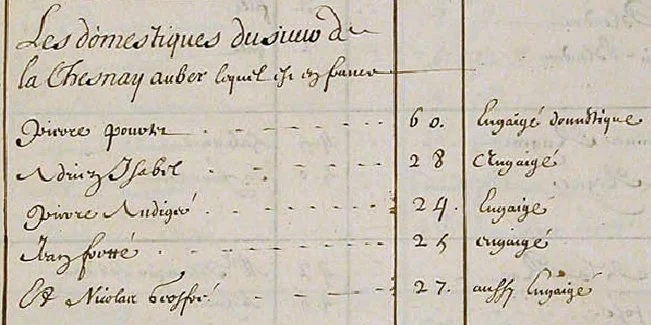 Les domestiques du sieur de
la Chesnay auber lequel est en france
Pierre pourter 60. Engaigé domestique
Adrien Isabel 28 Engaigé
Pierre Audigé 24. Engaigé
Jean forté 25 engaigé
Et Nicolas 27. aussy Engaigé